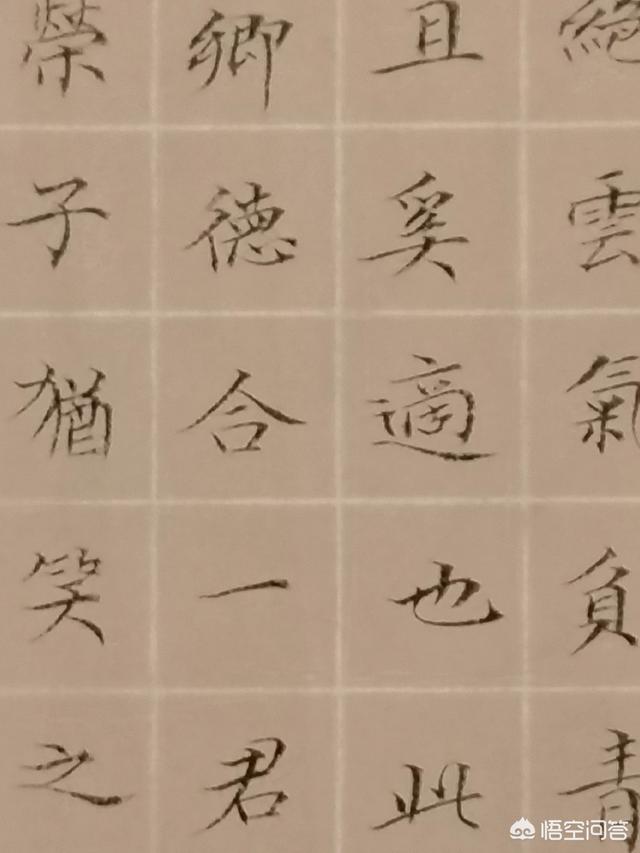 絕雲氣負青
且奚適也此
卿德合一君
榮子猶笑之
悟空问答